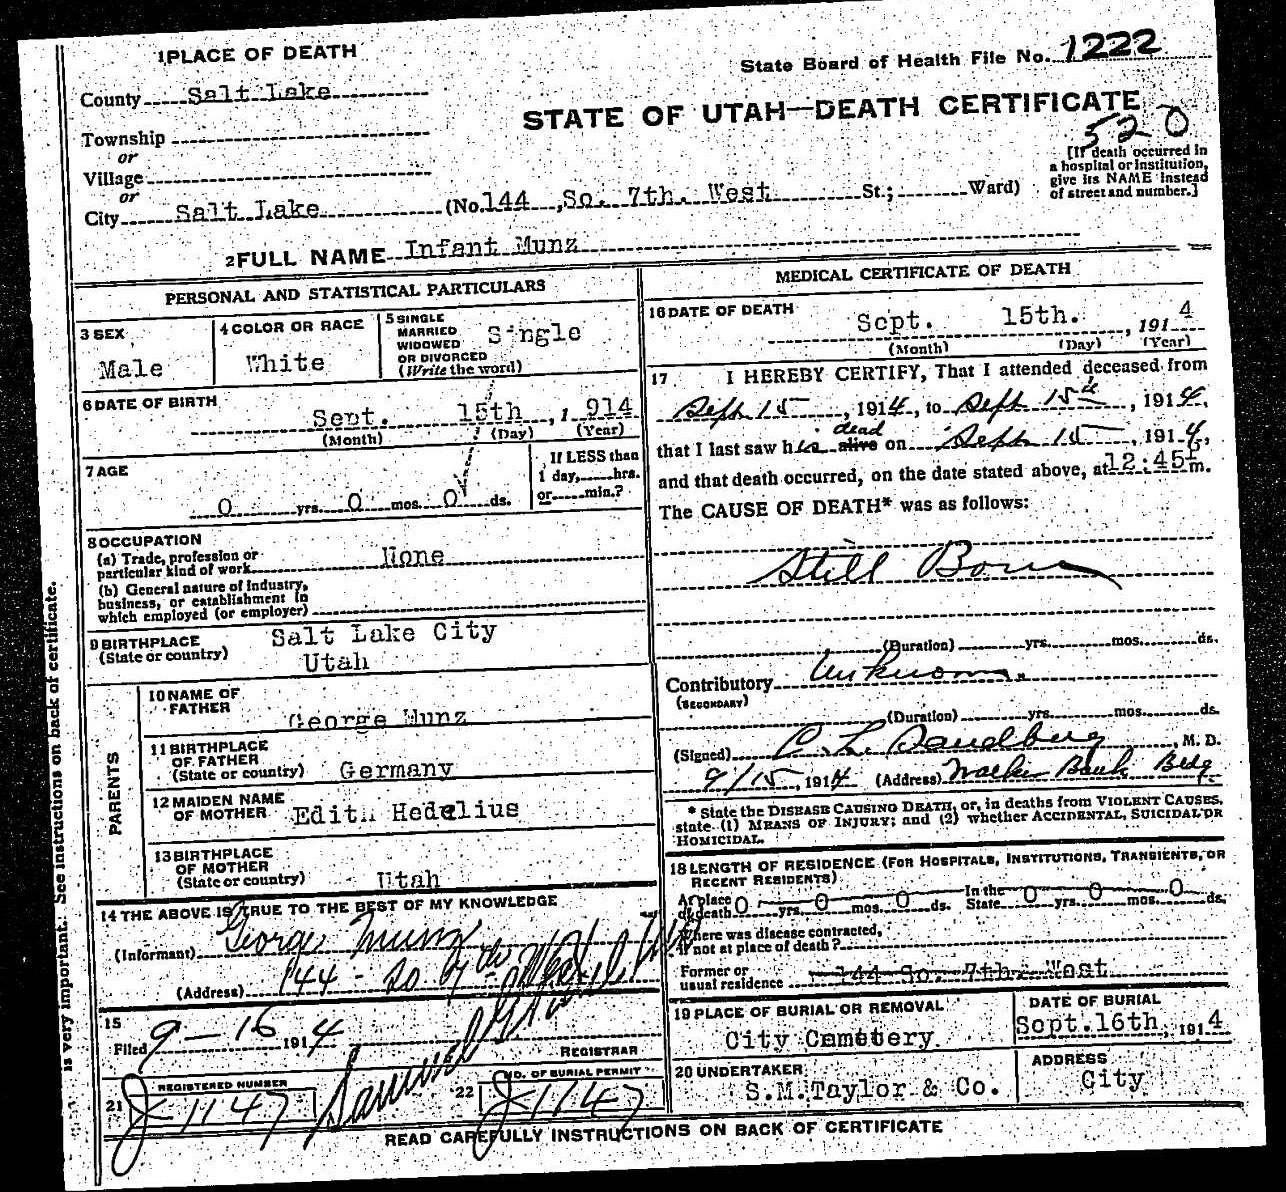 1 PLACE OF DEATH
State Board of Health File No. 1222
County Salt Lake
STATE OF UTAH—DEATH CERTIFICATE
520
Township
or
Village
or
City Salt Lake (No. 144, So. 7th. West St.; Ward)
[If death occurred in
a hospital or institution,
give its NAME instead
of street and number.]
2 FULL NAME Infant Munz
PERSONAL AND STATISTICAL PARTICULARS
3 SEX
Male
4 COLOR OR RACE
White
5 SINGLE
MARRIED
WIDOWED
OR DIVORCED
(Write the word)
Single
6 DATE OF BIRTH
Sept. 15th, 1914
(Month) (Day) (Year)
7 AGE
0 yrs. 0 mos. 0 ds.
If LESS than
1 day, hrs.
or min.?
8 OCCUPATION
(a) Trade, profession or
particular kind of work None
(b) General nature of industry,
business, or establishment in
which employed (or employer)
9 BIRTHPLACE
(State or country)
Salt Lake City
Utah
PARENTS
10 NAME OF
FATHER
George Munz
11 BIRTHPLACE
OF FATHER
(State or country) Germany
12 MAIDEN NAME
OF MOTHER Edith Hedelius
13 BIRTHPLACE
OF MOTHER
(State or country) Utah
14 THE ABOVE IS TRUE TO THE BEST OF MY KNOWLEDGE
(Informant) George Munz
(Address) 144 - So 7th West
15
Filed 9-16 1914
REGISTRAR
REGISTERED NUMBER
21 J-1147
NO. OF BURIAL PERMIT
22 J-1147
MEDICAL CERTIFICATE OF DEATH
16 DATE OF DEATH
Sept. 15th., 1914
(Month) (Day) (Year)
17 I HEREBY CERTIFY, That I attended deceased from
Sept 15, 1914, to Sept 15th, 1914,
dead
that I last saw him alive on Sept 15, 1914,
and that death occurred, on the date stated above, at 12:45 m.
The CAUSE OF DEATH* was as follows:
Still Born
(Duration) yrs. mos. ds.
Contributory Unknown.
(SECONDARY)
(Duration) yrs. mos. ds.
(Signed) C. L. Sandberg, M. D.
9/15, 1914 (Address) Walker Bank Bldg
* State the DISEASE CAUSING DEATH, or, in deaths from VIOLENT CAUSES,
state (1) MEANS OF INJURY; and (2) whether ACCIDENTAL, SUICIDAL OR
HOMICIDAL.
18 LENGTH OF RESIDENCE (FOR HOSPITALS, INSTITUTIONS, TRANSIENTS, OR
RECENT RESIDENTS)
At place
of death 0 yrs. 0 mos. 0 ds. In the
State 0 yrs. 0 mos. 0 ds.
Where was disease contracted,
if not at place of death?
Former or
usual residence 144 So. 7th. West
19 PLACE OF BURIAL OR REMOVAL
City Cemetery
DATE OF BURIAL
Sept. 16th, 1914
20 UNDERTAKER
S.M. Taylor & Co.
ADDRESS
City
READ CAREFULLY INSTRUCTIONS ON BACK OF CERTIFICATE
is very important. See instructions on back of certificate.